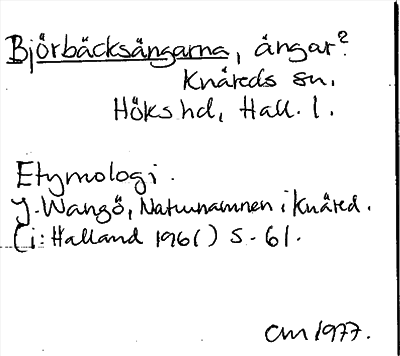 Björbäcksängarna, ängar?
Knäreds sn.
Höks hd, Hall. l.
Etymologi.
J. Wangö, Naturnamnen i Knäred.
(i: Halland 1961) s. 61.
CM 1977.